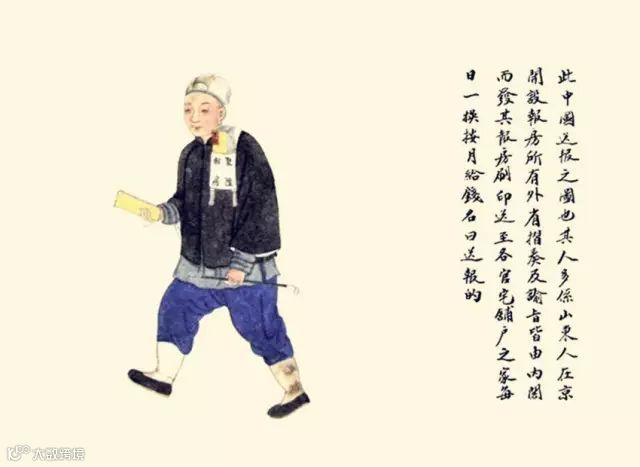 此中國送報之圖也其人多係山東人在京
開設報房所有外省摺奏及諭旨皆由內閣
而發其報房刷印送至各官宅舖戶之家每
日一換按月給錢名曰送報的
報房
大数跨境